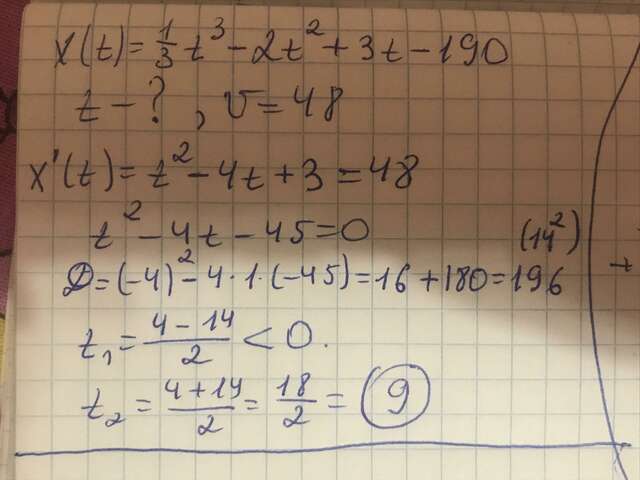 x(t) = 1/3 t³ - 2t² + 3t - 190
t - ? , v = 48
x'(t) = t² - 4t + 3 = 48
t² - 4t - 45 = 0 (14²)
D = (-4)² - 4 · 1 · (-45) = 16 + 180 = 196
t₁ = (4 - 14)/2 < 0.
t₂ = (4 + 14)/2 = 18/2 = 9